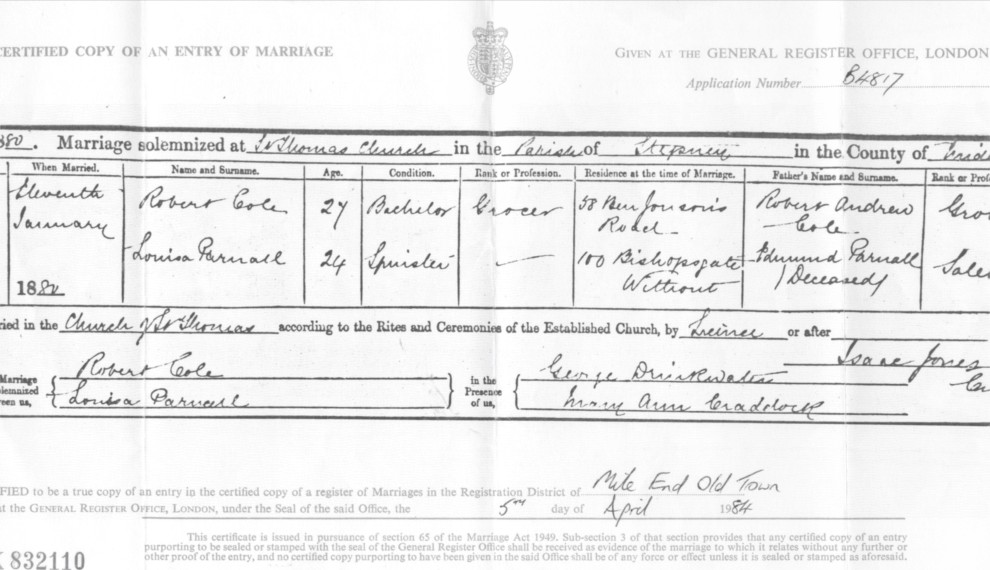 CERTIFIED COPY OF AN ENTRY OF MARRIAGE
GIVEN AT THE GENERAL REGISTER OFFICE, LONDON
Application Number B4817
880. Marriage solemnized at St Thomas Church in the Parish of Stepney in the County of
When Married. Name and Surname. Age. Condition. Rank or Profession. Residence at the time of Marriage. Father's Name and Surname. Rank or Prof
Eleventh Robert Cole 27 Bachelor Grocer 58 Ben Jonson's Robert Andrew Gro
January Road Cole
Louisa Parnall 24 Spinster 100 Bishopsgate Edmund Parnall Sale
1880 Without (Deceased)
ried in the Church of St Thomas according to the Rites and Ceremonies of the Established Church, by Licence or after
Isaac Jones
Marriage Robert Cole in the George Drinkwater Cu
olemnized Presence
een us, Louisa Parnall of us, Mary Ann Craddock
FIED to be a true copy of an entry in the certified copy of a register of Marriages in the Registration District of Mile End Old Town
at the GENERAL REGISTER OFFICE, LONDON, under the Seal of the said Office, the 5th day of April 1984
This certificate is issued in pursuance of section 65 of the Marriage Act 1949. Sub-section 3 of that section provides that any certified copy of an entry
purporting to be sealed or stamped with the seal of the General Register Office shall be received as evidence of the marriage to which it relates without any further or
other proof of the entry, and no certified copy purporting to have been given in the said Office shall be of any force or effect unless it is sealed or stamped as aforesaid.
832110